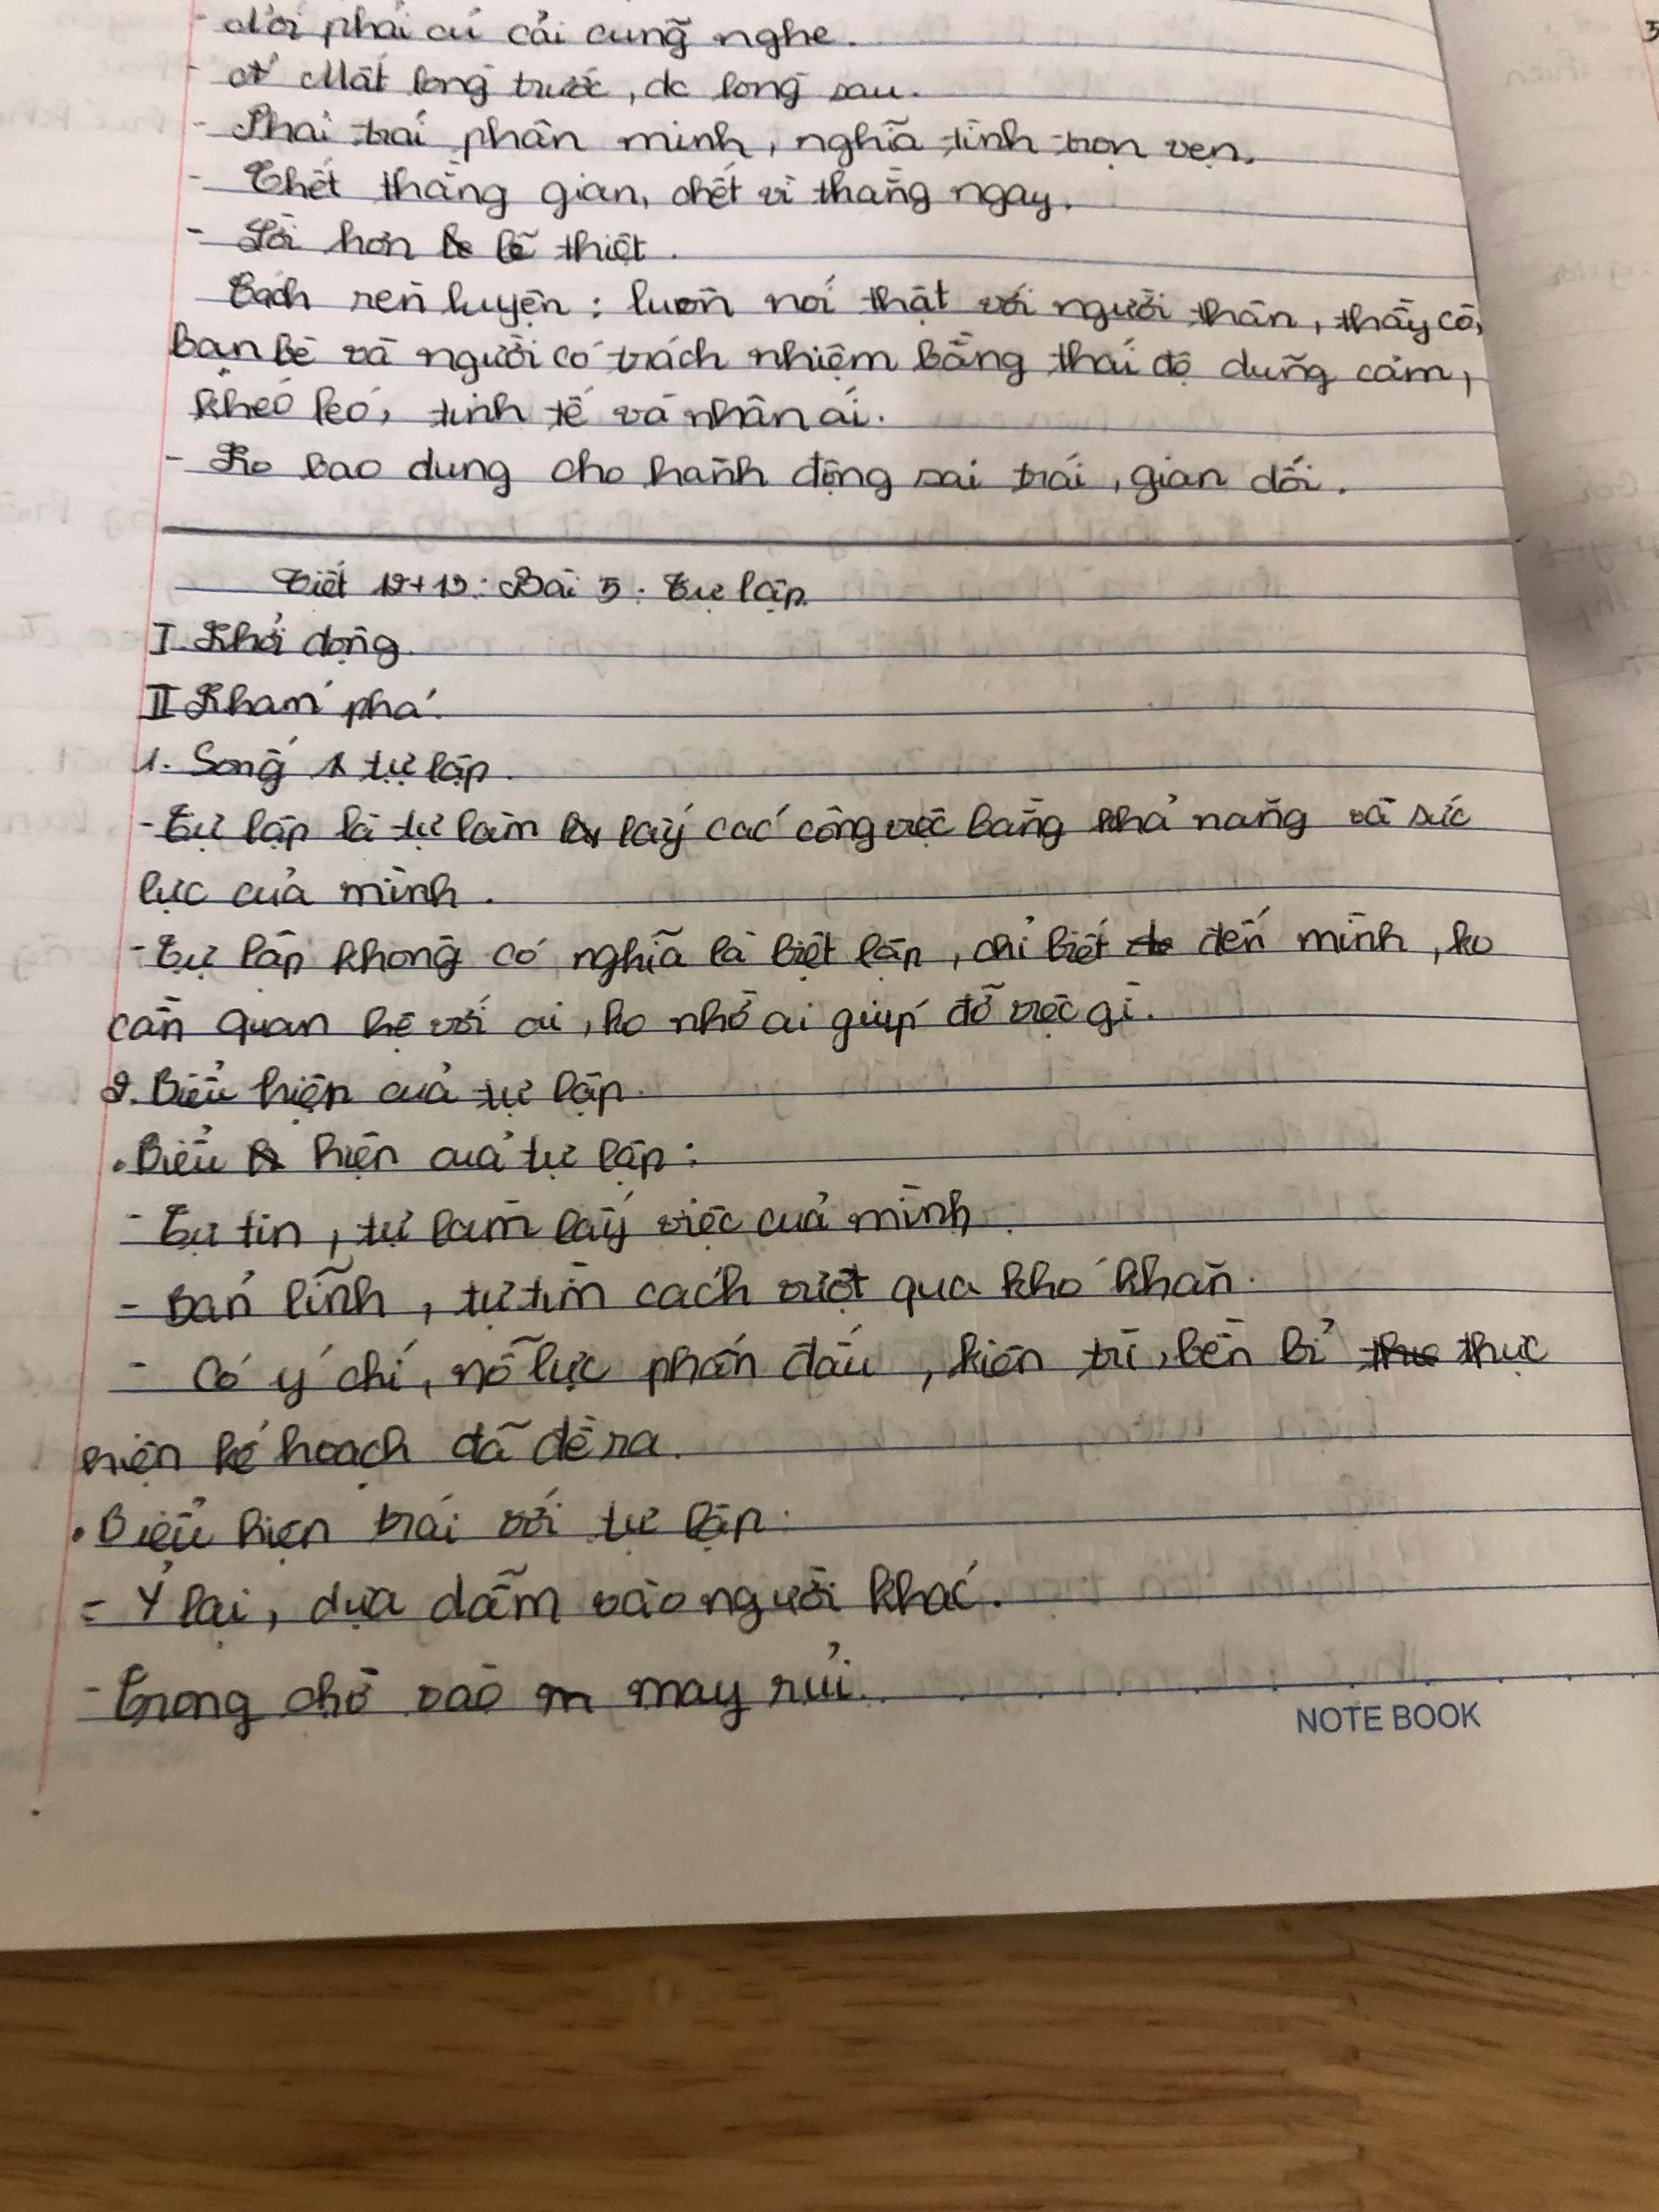 - Nói phải củ cải cũng nghe.
- Mất lòng trước, dc lòng sau.
- Phải trái phân minh, nghĩa tình trọn vẹn.
- Chết thằng gian, chết vì thằng ngay.
- Lời hơn lẽ thiệt.
Cách rèn luyện: luôn nói thật với người thân, thầy cô,
bạn bè và người có trách nhiệm bằng thái độ dũng cảm,
khéo léo, tinh tế và nhân ái.
- Ko bao dung cho hành động sai trái, gian dối.
Tiết 12+13: Bài 5: Tự lập
I. Khởi động
II Khám phá
1. Sống tự lập.
- Tự lập là tự làm lấy các công việc bằng khả năng và sức
lực của mình.
- Tự lập không có nghĩa là biệt lập, chỉ biết đến mình, ko
cần quan hệ với ai, ko nhờ ai giúp đỡ việc gì.
2. Biểu hiện của tự lập.
• Biểu hiện của tự lập:
- Tự tin, tự làm lấy việc của mình.
- Bản lĩnh, tự tìm cách vượt qua khó khăn.
- Có ý chí, nỗ lực phấn đấu, kiên trì, bền bỉ thực
hiện kế hoạch đã đề ra.
• Biểu hiện trái với tự lập:
- Ỷ lại, dựa dẫm vào người khác.
- Trong chờ vào may rủi.
NOTE BOOK